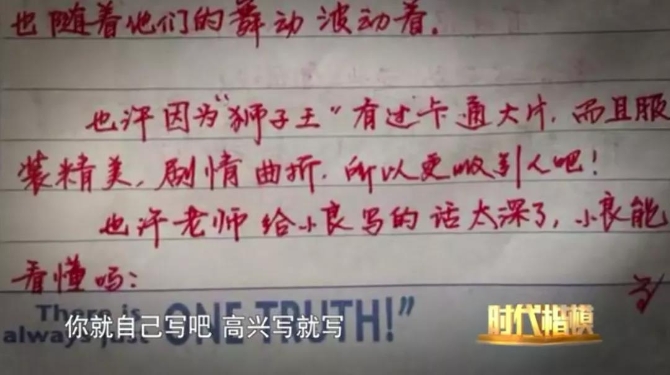 也随着他们的舞动波动着。
也许因为“狮子王”有过卡通大片,而且服
装精美,剧情曲折,所以更吸引人吧!
也许老师给小良写的话太深了,小良能
看懂吗:
There is
always just ONE TRUTH!”
你就自己写吧 高兴写就写
时代楷模